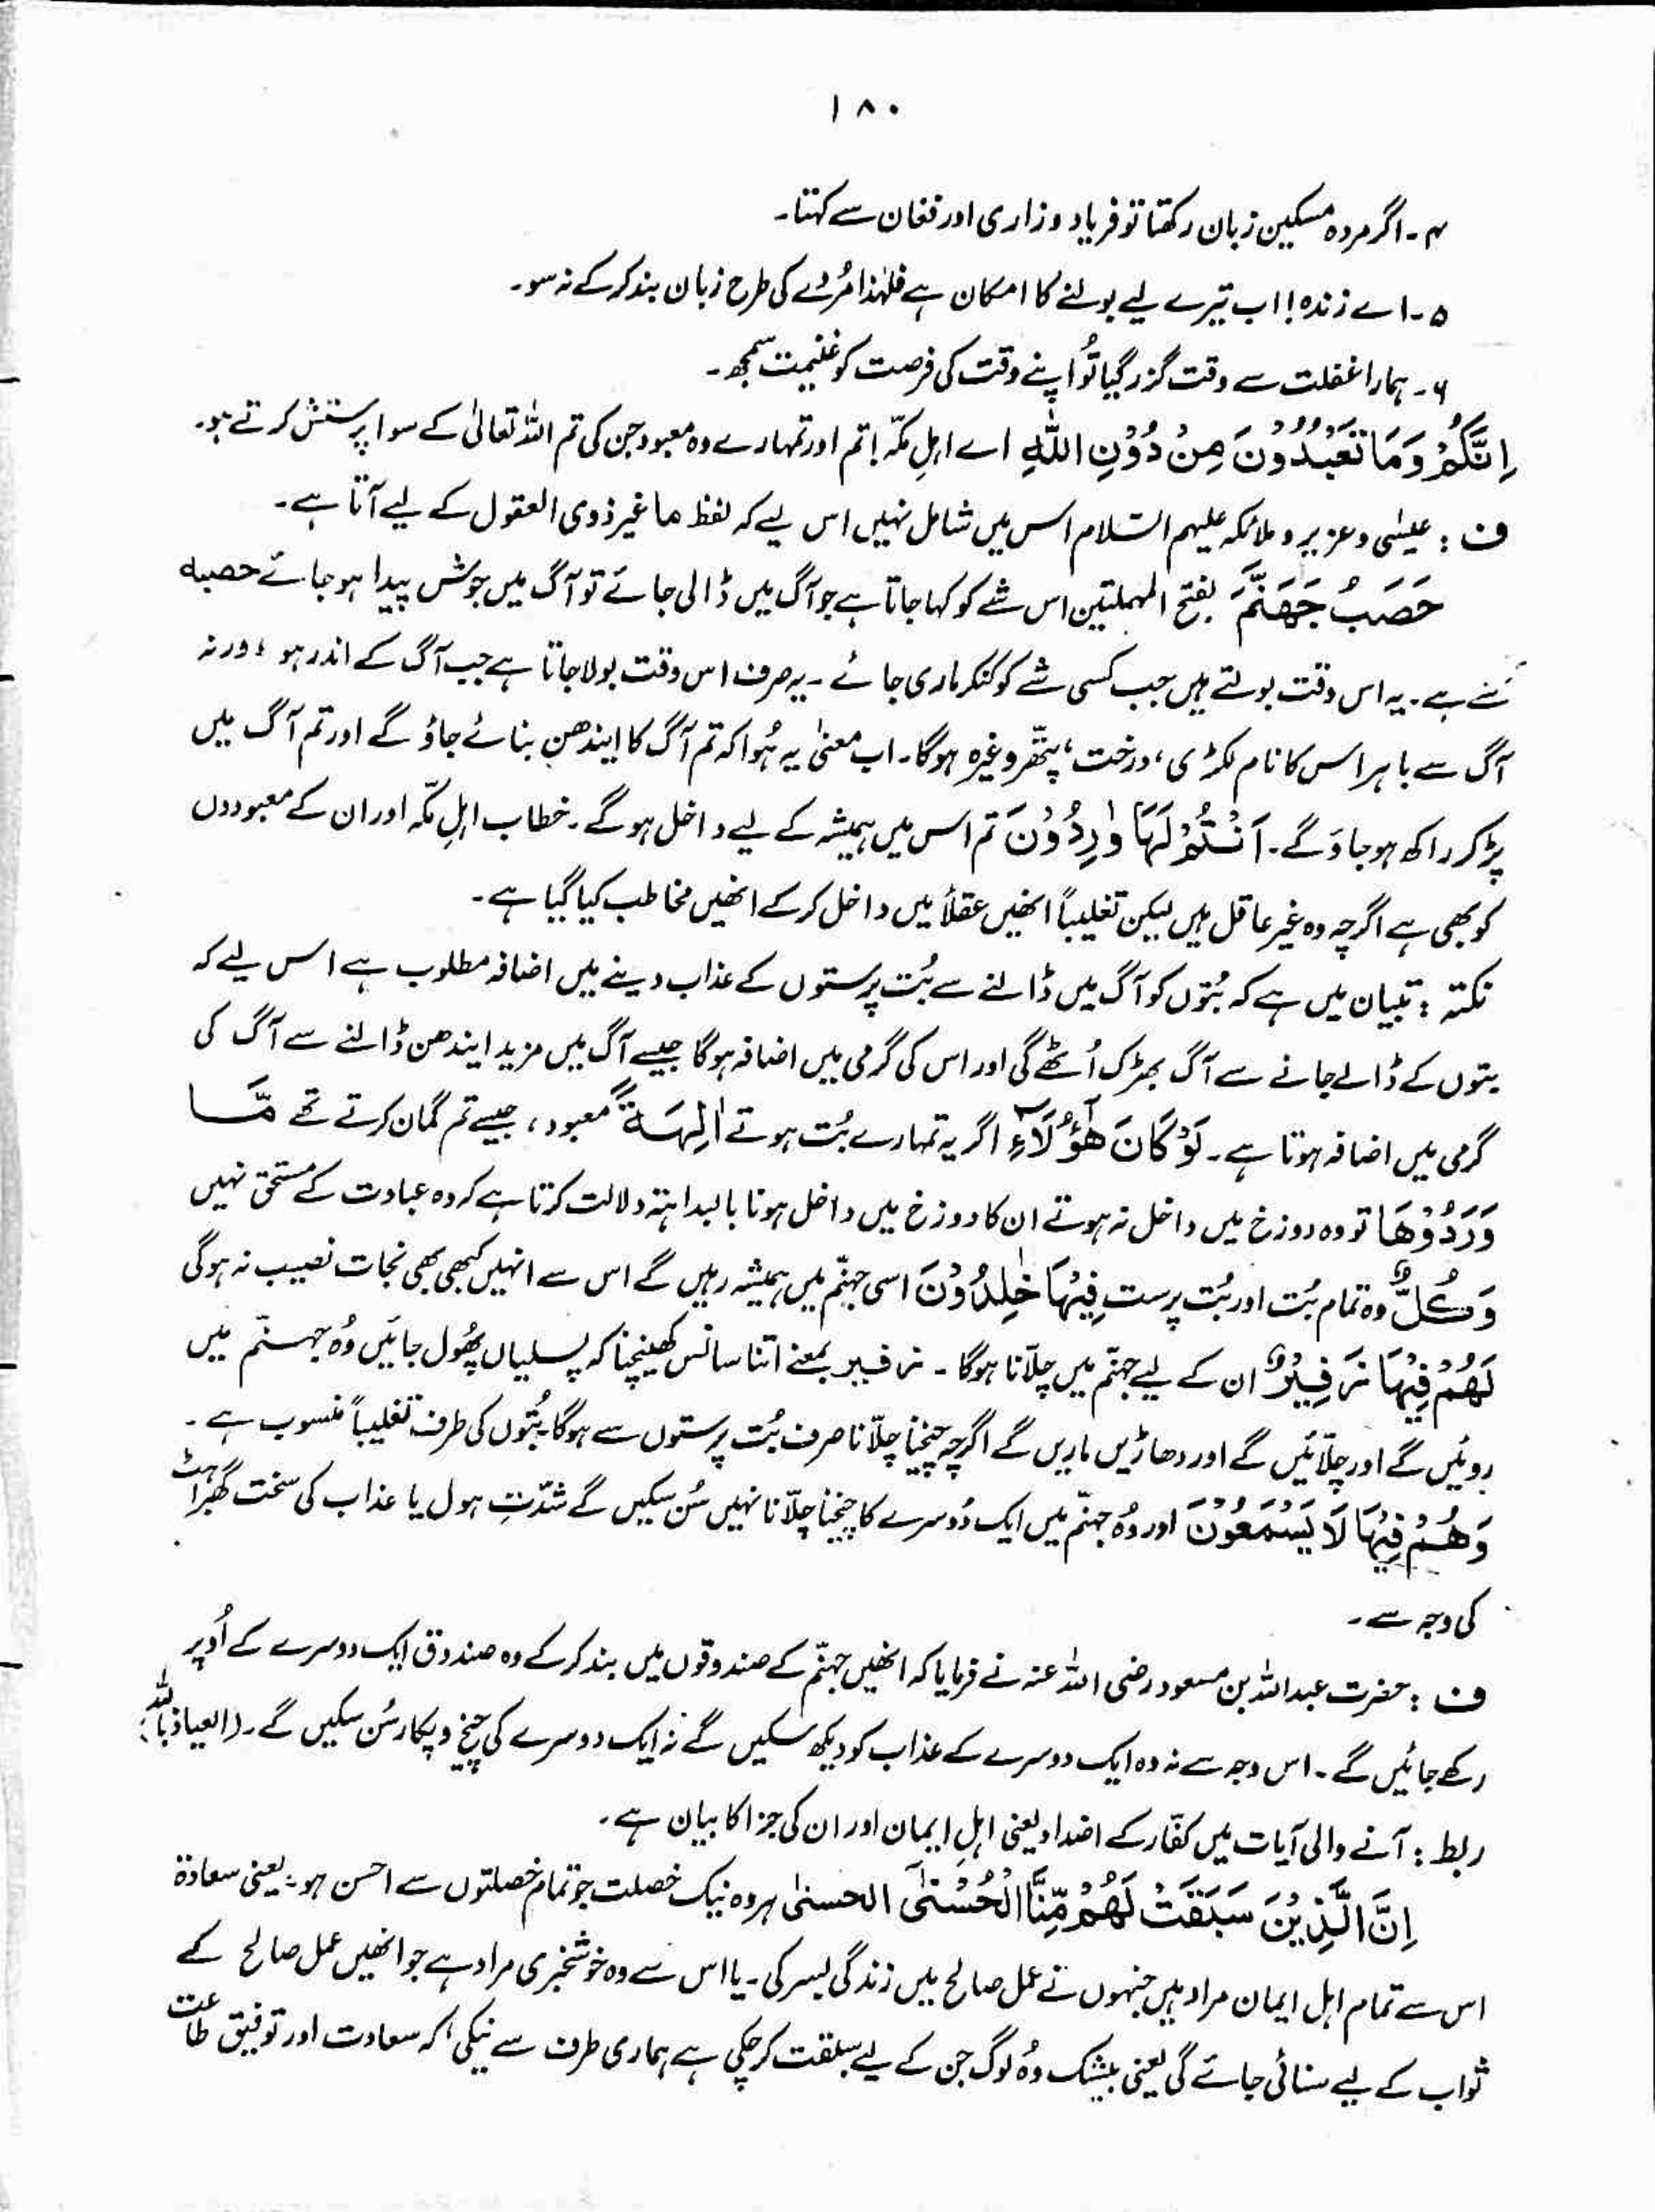 ۱۸۰
۴۔ اگر مردہ مسکین زبان رکھتا تو فریاد و زاری اور فغان سے کہتا۔
۵۔ اے زندہ! اب تیرے لیے بولنے کا امکان ہے فلہٰذا مُردے کی طرح زبان بند کر کے نہ سو۔
۶۔ ہمارا غفلت سے وقت گزر گیا تُو اپنے وقت کی فرصت کو غنیمت سمجھ۔
اِنَّكُمْ وَمَا تَعْبُدُوْنَ مِنْ دُوْنِ اللّٰهِ اے اہلِ مکّہ! تم اور تمہارے وہ معبود جن کی تم اللہ تعالیٰ کے سوا پرستش کرتے ہو۔
ف : عیسٰی و عزیر و ملائکہ علیہم السّلام اس میں شامل نہیں اس لیے کہ لفظ ما غیر ذوی العقول کے لیے آتا ہے۔
حَصَبُ جَهَنَّمَ بفتح المہملتین اس شے کو کہا جاتا ہے جو آگ میں ڈالی جائے تو آگ میں جوش پیدا ہو جائے حصبه
سے ہے۔ یہ اس وقت بولتے ہیں جب کسی شے کو کنکر ماری جائے ۔ یہ صرف اس وقت بولا جاتا ہے جب آگ کے اندر ہو ، ورنہ
آگ سے باہر اس کا نام لکڑی ، درخت ، پتّھر وغیرہ ہوگا۔ اب معنیٰ یہ ہُوا کہ تم آگ کا ایندھن بنائے جاؤ گے اور تم آگ میں
پڑ کر راکھ ہو جاؤ گے۔ اَنْتُمْ لَهَا وٰرِدُوْنَ تم اس میں ہمیشہ کے لیے داخل ہو گے۔ خطاب اہلِ مکّہ اور ان کے معبودوں
کو بھی ہے اگرچہ وہ غیر عاقل ہیں لیکن تغلیباً انھیں عقلاً میں داخل کر کے انھیں مخاطب کیا گیا ہے۔
نکتہ : تبیان میں ہے کہ بُتوں کو آگ میں ڈالنے سے بُت پرستوں کے عذاب دینے میں اضافہ مطلوب ہے اس لیے کہ
بتوں کے ڈالے جانے سے آگ بھڑک اُٹھے گی اور اس کی گرمی میں اضافہ ہوگا جیسے آگ میں مزید ایندھن ڈالنے سے آگ کی
گرمی میں اضافہ ہوتا ہے۔ لَوْ كَانَ هٰٓؤُلَآءِ اگر یہ تمہارے بُت ہوتے اٰلِهَةً معبود ، جیسے تم گمان کرتے تھے مَّا
وَرَدُوْهَا تو وہ دوزخ میں داخل نہ ہوتے ان کا دوزخ میں داخل ہونا بالبداہتہ دلالت کرتا ہے کہ وہ عبادت کے مستحق نہیں
وَكُلٌّ وہ تمام بُت اور بُت پرست فِيْهَا خٰلِدُوْنَ اسی جہنّم میں ہمیشہ رہیں گے اس سے انہیں کبھی بھی نجات نصیب نہ ہوگی
لَهُمْ فِيْهَا زَفِيْرٌ ان کے لیے جہنّم میں چلّانا ہوگا ۔ زفیر بمعنے اتنا سانس کھینچنا کہ پسلیاں پھُول جائیں وُہ جہنّم میں
روئیں گے اور چلّائیں گے اور دھاڑیں ماریں گے اگرچہ چیخنا چلّانا صرف بُت پرستوں سے ہوگا بُتوں کی طرف تغلیباً منسوب ہے ۔
وَهُمْ فِيْهَا لَا يَسْمَعُوْنَ اور وُہ جہنّم میں ایک دُوسرے کا چیخنا چلّانا نہیں سُن سکیں گے شدّتِ ہول یا عذاب کی سخت گھبراہٹ
کی وجہ سے۔
ف : حضرت عبداللہ بن مسعود رضی اللہ عنہ نے فرمایا کہ انھیں جہنّم کے صندوقوں میں بند کر کے وہ صندوق ایک دوسرے کے اُوپر
رکھے جائیں گے ۔ اس وجہ سے نہ وہ ایک دوسرے کے عذاب کو دیکھ سکیں گے نہ ایک دوسرے کی چیخ و پکار سُن سکیں گے۔ (العیاذ باللہ)
ربط : آنے والی آیات میں کفّار کے اضداد یعنی اہلِ ایمان اور ان کی جزا کا بیان ہے۔
اِنَّ الَّذِيْنَ سَبَقَتْ لَهُمْ مِّنَّا الْحُسْنٰٓى الحسنٰی ہر وہ نیک خصلت جو تمام خصلتوں سے احسن ہو۔ یعنی سعادۃ
اس سے تمام اہل ایمان مراد ہیں جنہوں نے عمل صالح میں زندگی بسر کی۔ یا اس سے وہ خوشخبری مراد ہے جو انھیں عمل صالح کے
ثواب کے لیے سنائی جائے گی یعنی بیشک وُہ لوگ جن کے لیے سبقت کر چکی ہے ہماری طرف سے نیکی ، کہ سعادت اور توفیق طاعت